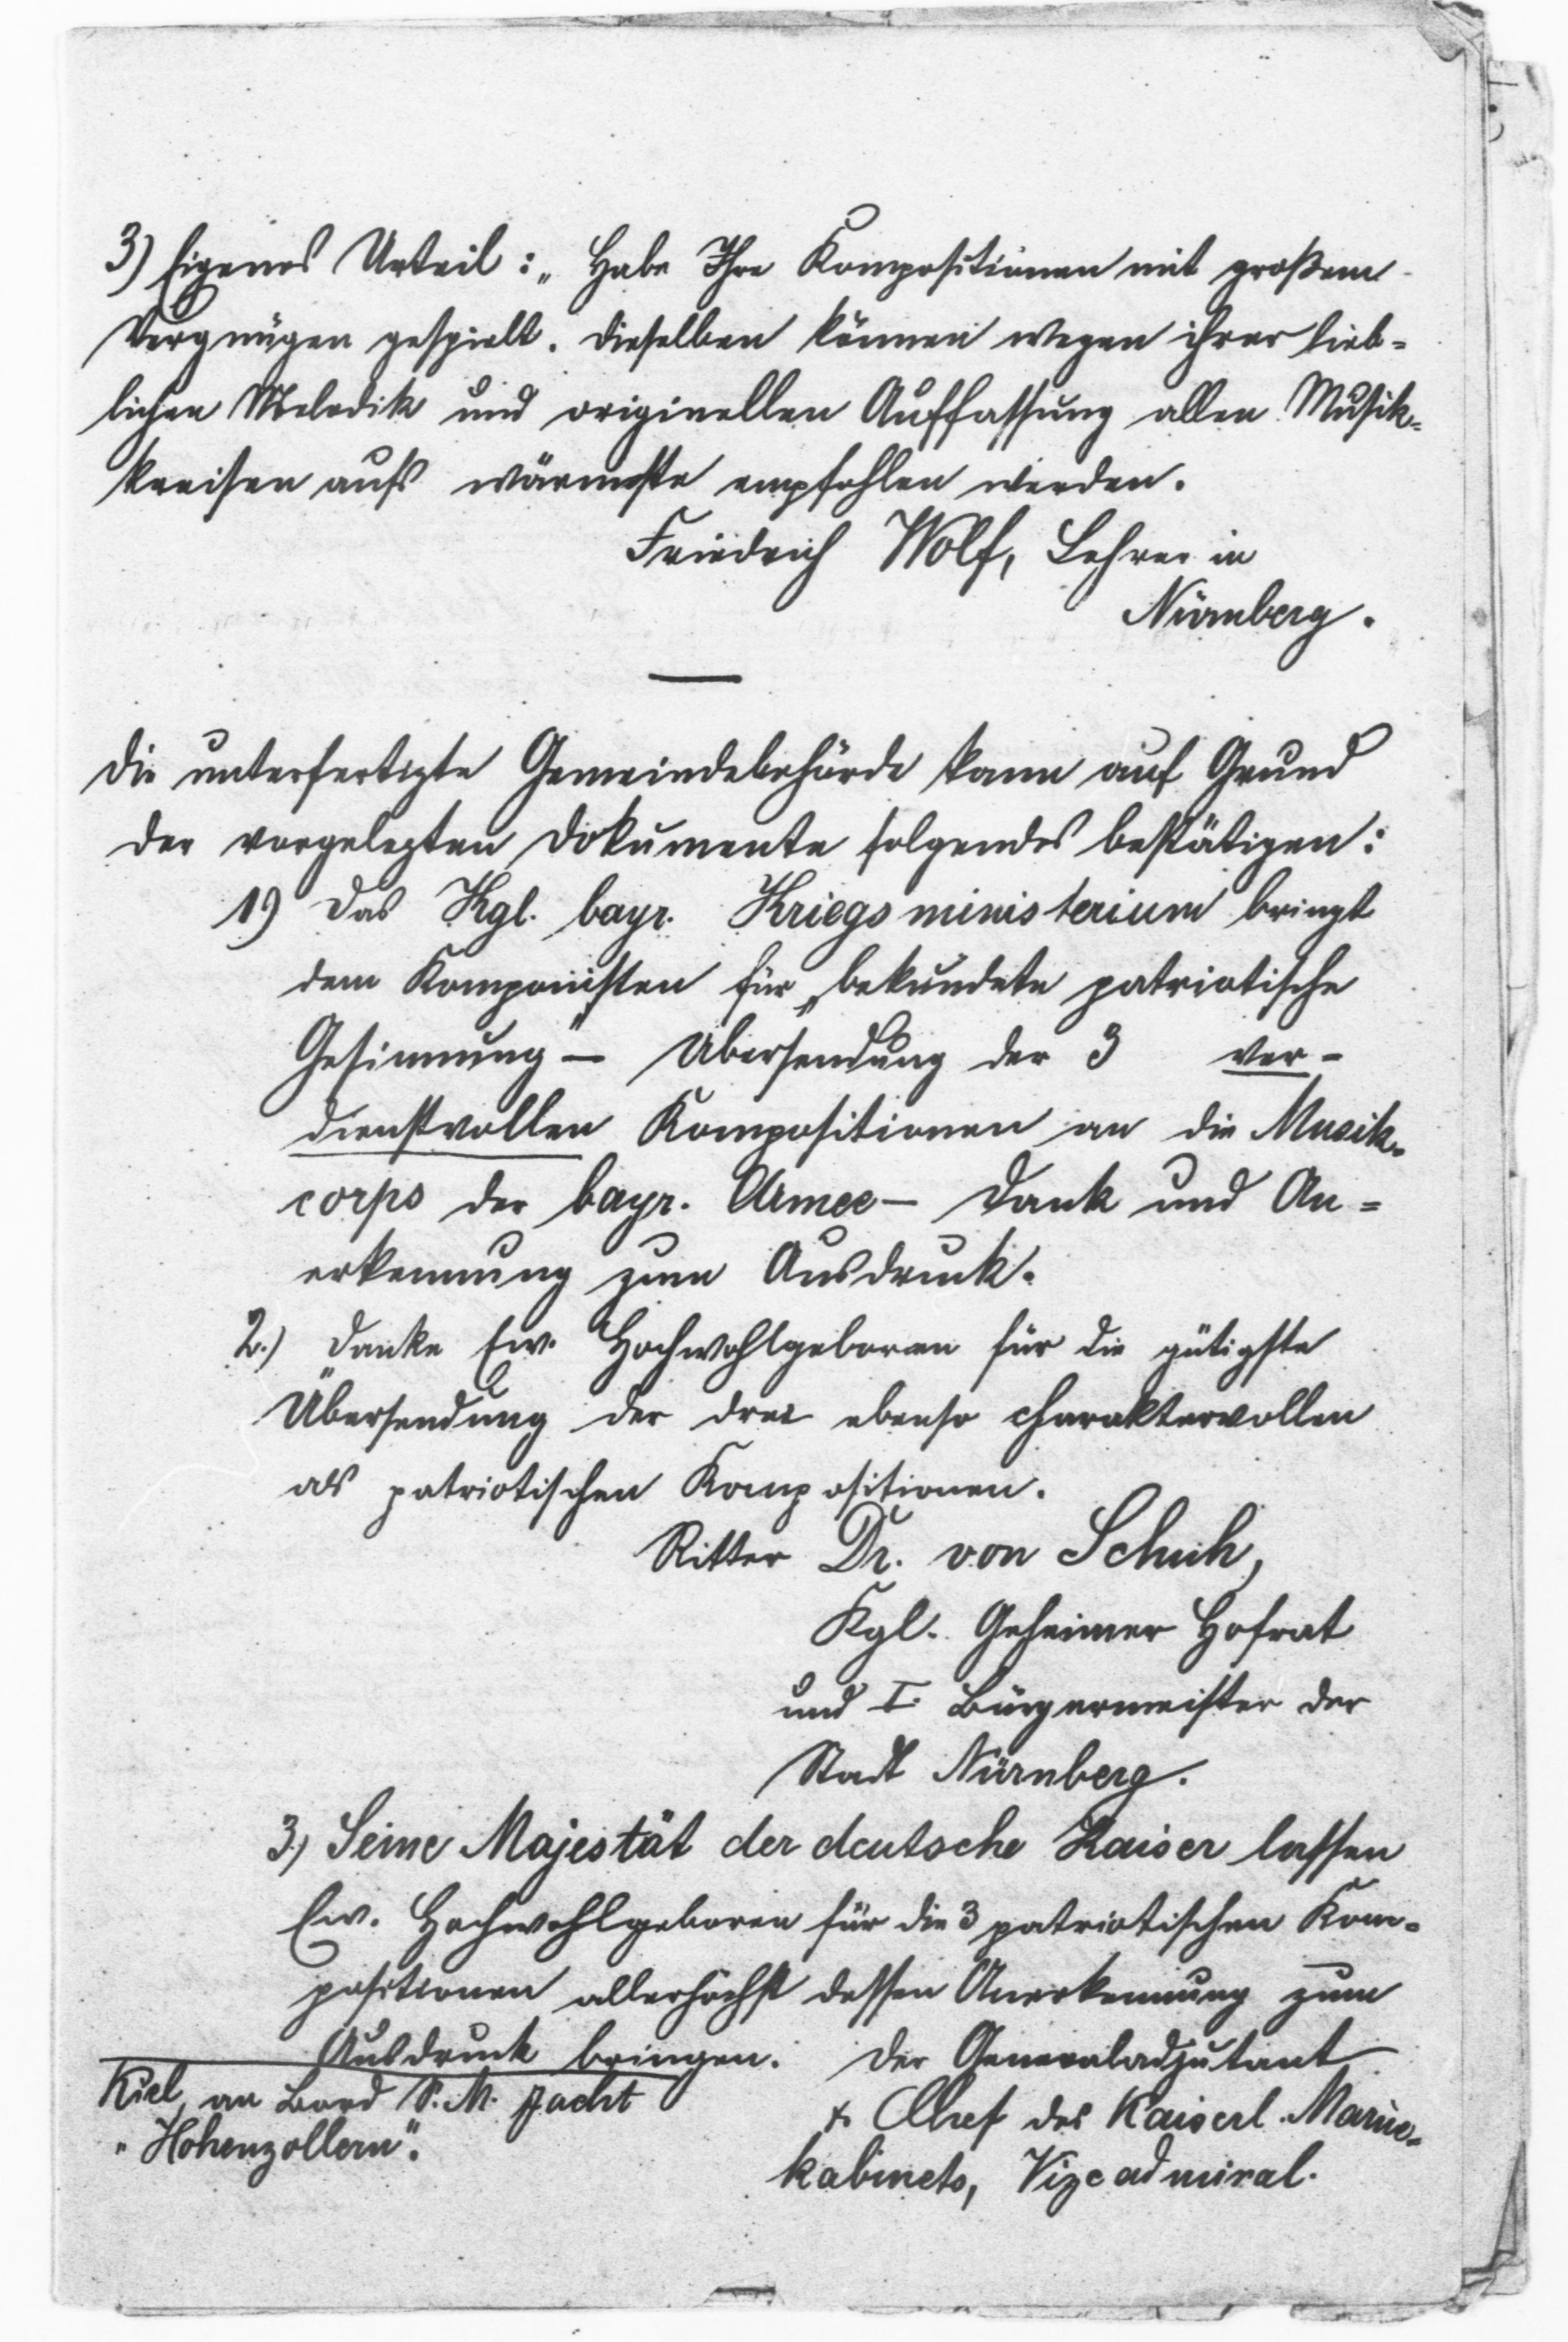 3) Eigenes Urteil: „Habe Ihre Kompositionen mit großem
Vergnügen gespielt. Dieselben können wegen ihrer lieb-
lichen Melodik und originellen Auffassung allen Musik-
kreisen aufs wärmste empfohlen werden.
Friedrich Wolf, Lehrer in
Nürnberg.
Die unterfertigte Gemeindebehörde kann auf Grund
der vorgelegten Dokumente folgendes bestätigen:
1) Das Kgl. bayr. Kriegsministerium bringt
dem Komponisten für „bekundete patriotische
Gesinnung" — Übersendung der 3 ver-
dienstvollen Kompositionen an die Musik-
corps der bayr. Armee — Dank und An-
erkennung zum Ausdruck.
2.) Danke Ew. Hochwohlgeboren für die gütigste
Übersendung der drei ebenso charaktervollen
als patriotischen Kompositionen.
Ritter Dr. von Schuh,
Kgl. Geheimer Hofrat
und I. Bürgermeister der
Stadt Nürnberg.
3.) Seine Majestät der deutsche Kaiser lassen
Ew. Hochwohlgeboren für die 3 patriotischen Kom-
positionen allerhöchst dessen Anerkennung zum
Ausdruck bringen. Der Generaladjutant
Kiel, an Bord S. M. Jacht
"Hohenzollern".
+ Chef des Kaiserl. Marine-
kabinets, Vizeadmiral.